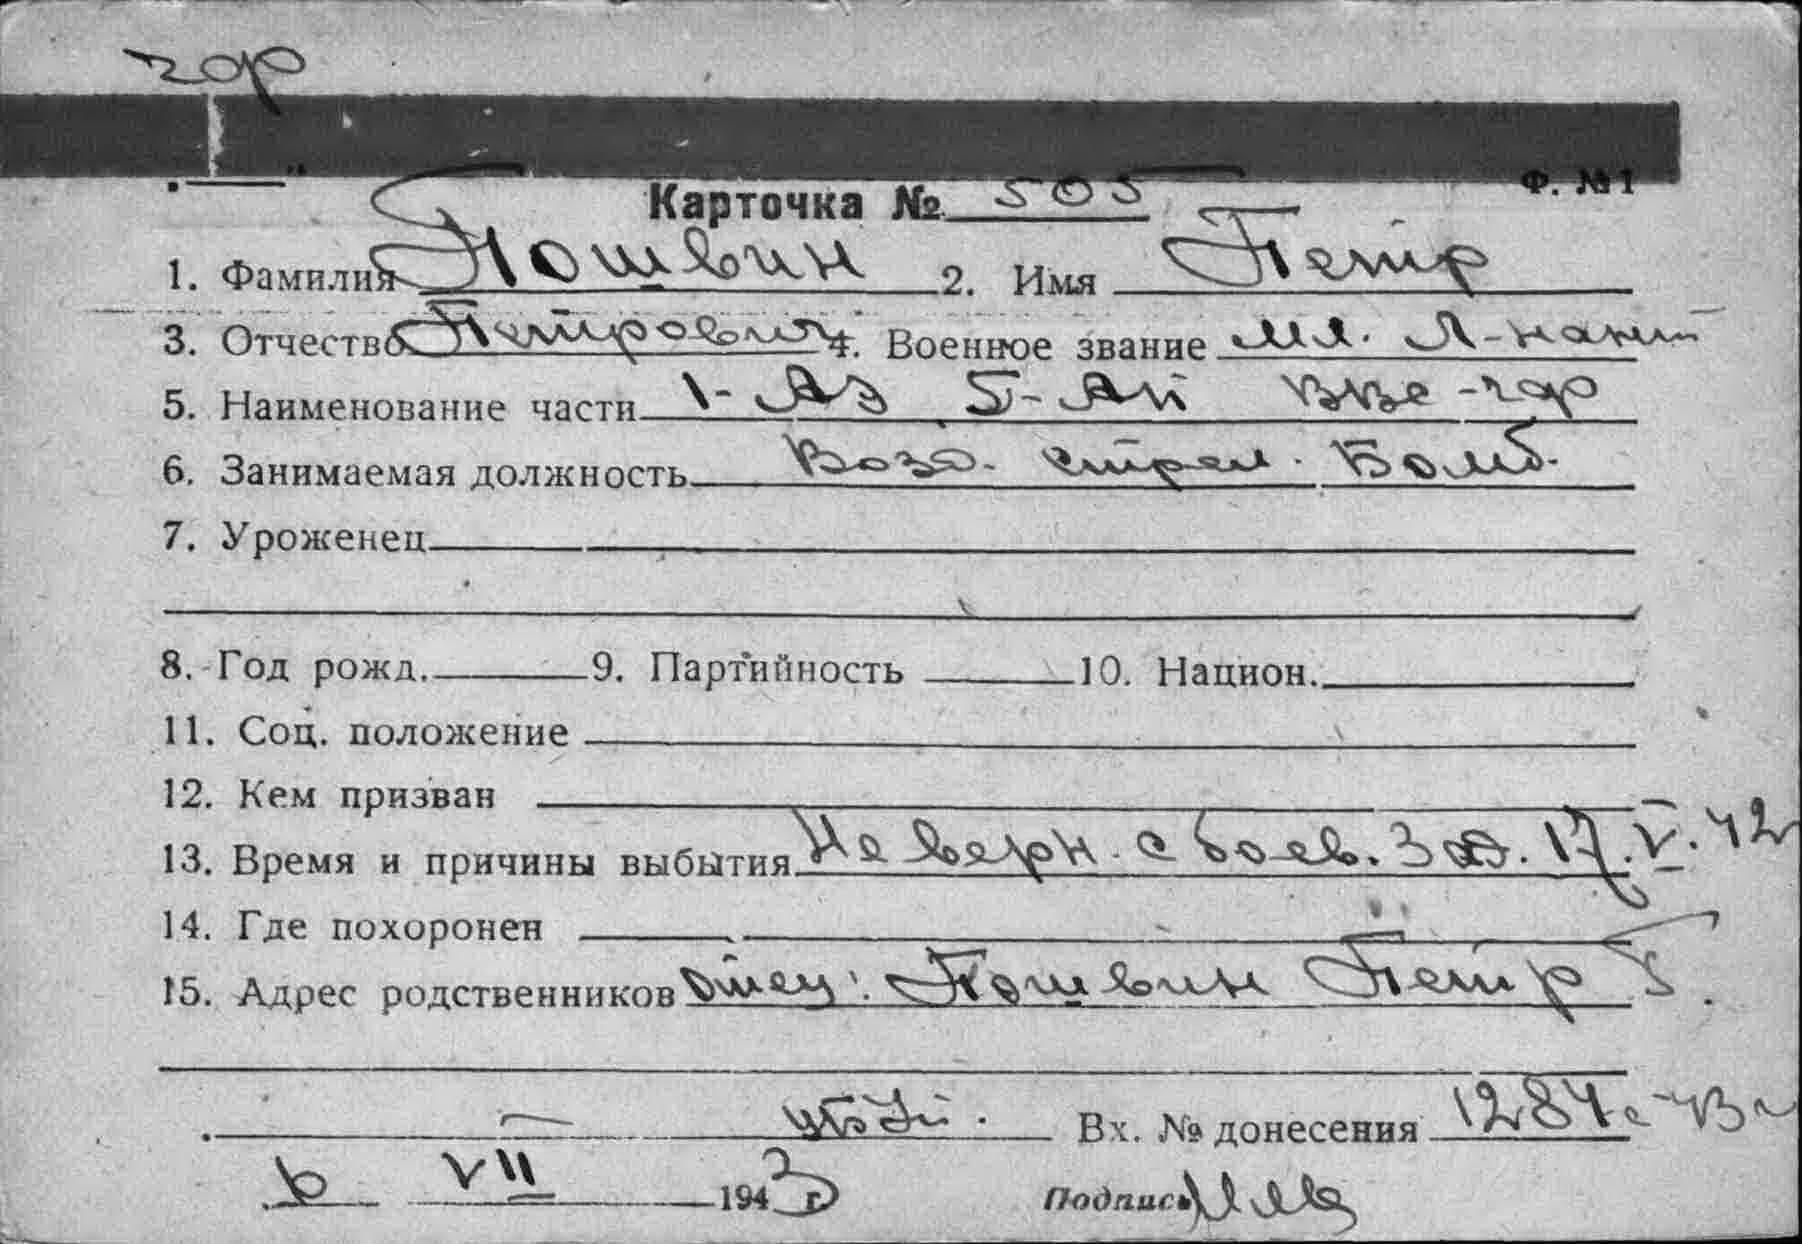 чор
Ф. №1
Карточка № 505
1. Фамилия Пошвин 2. Имя Петр
3. Отчество Петрович 4. Военное звание мл. л-нант
5. Наименование части 1-АЭ 5-АП ВВС-чф
6. Занимаемая должность Возд. стрел. Бомб.
7. Уроженец
8. Год рожд. 9. Партийность 10. Национ.
11. Соц. положение
12. Кем призван
13. Время и причины выбытия Не верн. с боев. зад. 17.V.42
14. Где похоронен
15. Адрес родственников Отец: Пошвин Петр Г.
Вх. № донесения 1284с-43г
6 VII 1943 г. Подпись